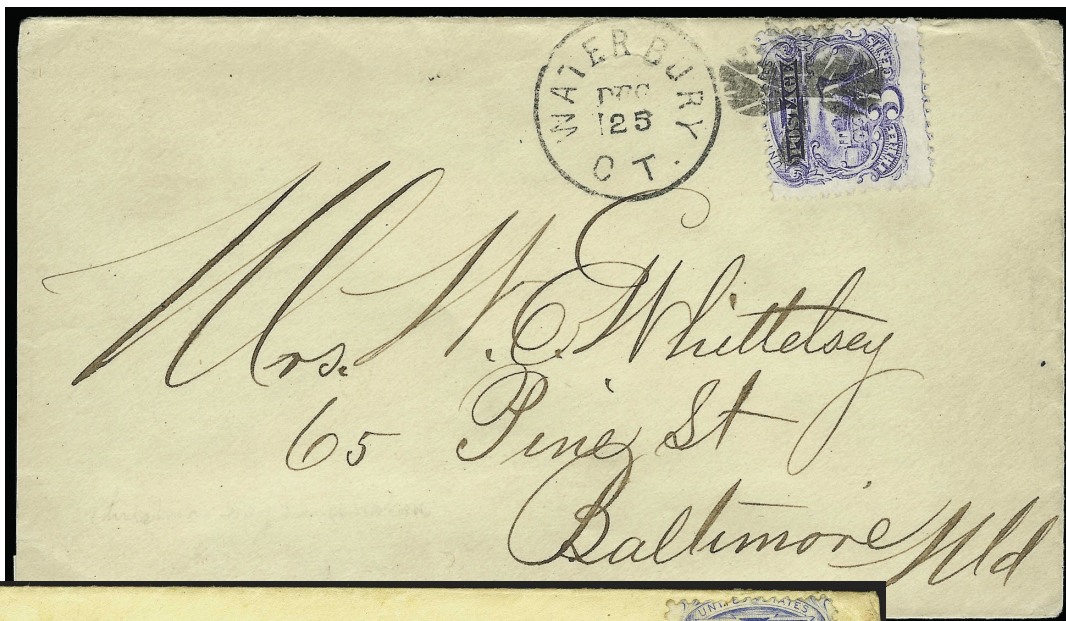 WATERBURY
DEC
25
CT.
UNITED
POSTAGE
3
Mrs. W. E. Whittelsey
65 Pine St
Baltimore Md
UNITED STATES